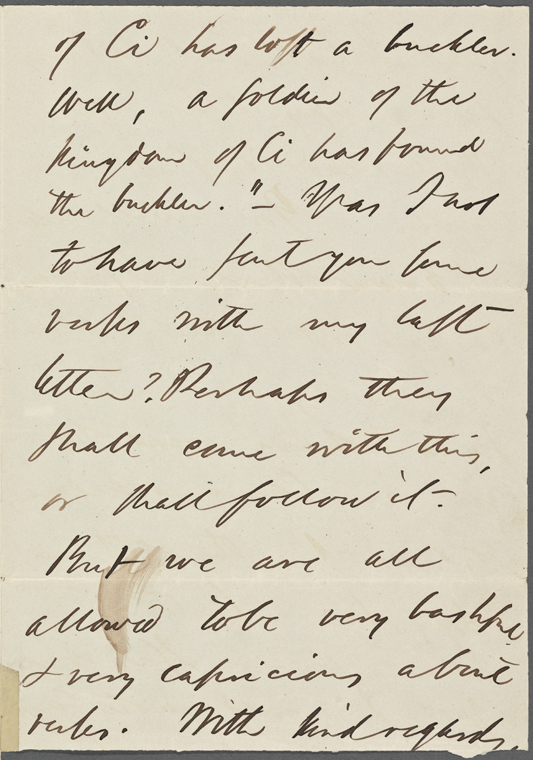 of Ci has lost a buckler.
Well, a soldier of the
kingdom of Ci has found
the buckler."— Was I not
to have sent you some
verses with my last
letter? Perhaps they
shall come with this,
or shall follow it.
But we are all
allowed to be very bashful
& very capricious about
verses. With kind regards,